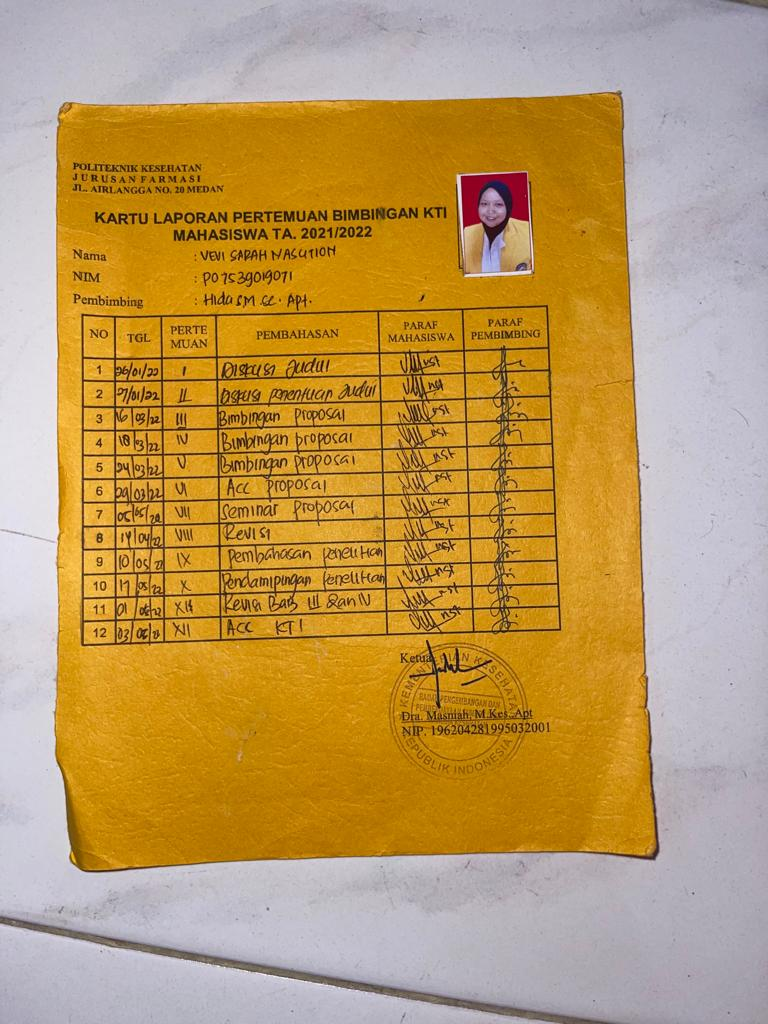 POLITEKNIK KESEHATAN
JURUSAN FARMASI
JL. AIRLANGGA NO. 20 MEDAN
KARTU LAPORAN PERTEMUAN BIMBINGAN KTI
MAHASISWA TA. 2021/2022
Nama : VEVI SARAH NASUTION
NIM : P07539019071
Pembimbing : Hida S.M.Sc. Apt.
NO TGL PERTE MUAN PEMBAHASAN PARAF MAHASISWA PARAF PEMBIMBING
1 26/01/22 I Diskusi Judul
2 27/01/22 II Diskusi penentuan Judul
3 16/03/22 III Bimbingan proposal
4 18/03/22 IV Bimbingan proposal
5 24/03/22 V Bimbingan proposal
6 29/03/22 VI Acc proposal
7 VII Seminar proposal
8 14/04/22 VIII Revisi
9 10/05/22 IX Pembahasan penelitian
10 17/05/22 X Pendampingan penelitian
11 01/06/22 Revisi Bab III dan IV
12 03/06/22 XII Acc KTI
Ketua
KEMENTERIAN KESEHATAN
BADAN PENGEMBANGAN DAN
REPUBLIK INDONESIA
Dra. Masniah, M.Kes, Apt
NIP. 196204281995032001